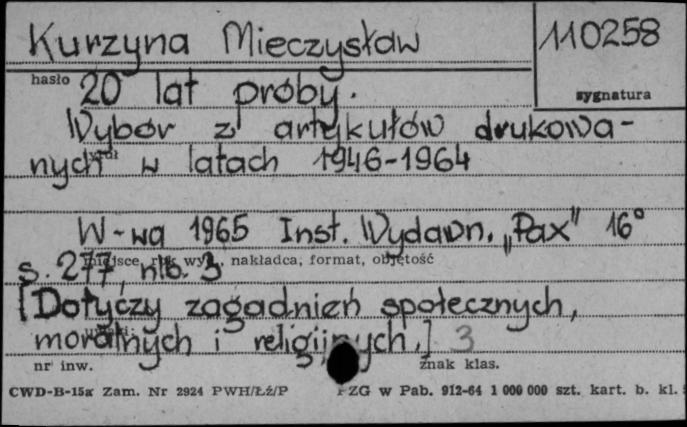 Kurzyna Mieczysław
110258
hasło
sygnatura
20 lat próby.
Wybór z artykułów drukowa-
nych w latach 1946-1964
tytuł
W-wa 1965 Inst. Wydawn. „Pax" 16°
miejsce, rok wyd., nakładca, format, objętość
s. 277, nlb. 3
[Dotyczy zagadnień społecznych,
moralnych i religijnych.] 3
nr inw.
znak klas.
CWD-B-15a Zam. Nr 2924 PWH/Łź/P
PZG w Pab. 912-64 1 000 000 szt. kart. b. kl.